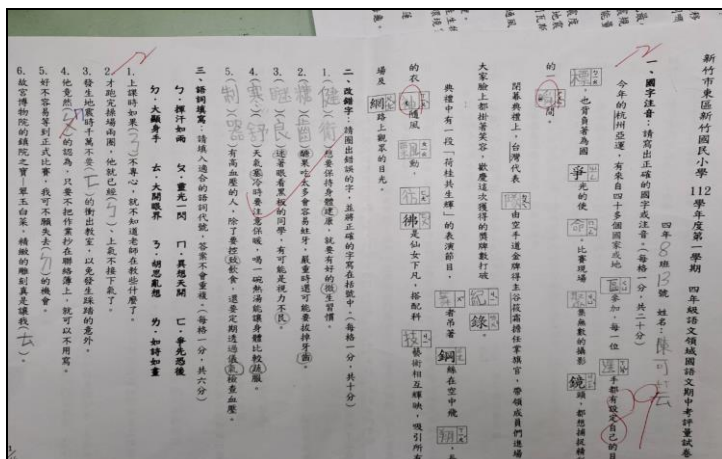 新竹市東區新竹國民小學 112 學年度第一學期 四年級語文領域國語文期中考評量試卷
四年8班13號 姓名:陳
一、國字注音:請寫出正確的國字或注音。(每格一分,共二十分)
今年的杭州亞運,有來自四十多個國家或地區參加。每一位選手都有設定自己的目
標,也背負著為國爭光的使命。比賽現場聚集無數的攝影鏡頭,都想捕捉精
的一瞬間。
閉幕典禮上,台灣代表由空手道金牌得主谷筱霜擔任掌旗官,帶領成員們進場
大家臉上都掛著笑容,歡慶這次獲得的獎牌數打破紀錄。
典禮中有一段「荷桂共生輝」的表演節目,舞者吊著鋼絲在空中飛翔,
的衣隨風動,彷彿是仙女下凡,搭配科技藝術相互輝映,吸引所有
場及網路上觀眾的目光。
二、改錯字:請圈出錯誤的字,並將正確的字寫在括號中。(每格一分,共十分)
1.(健)(衛)想要保持身體建康,就要有好的微生習慣。
2.(糖)(齒)醣果吃太多會容易蛀牙,嚴重時還可能要拔掉牙齒。
3.(瞇)(良)迷著眼看黑板的同學,有可能是視力不艮。
4.(寒)(舒)天氣塞冷時要注意保暖,喝一碗熱湯能讓身體比較疏服。
5.(制)(器)有高血壓的人,除了要控飲食,還要定期透過儀氣檢查血壓。
三、語詞填寫:請填入適合的語詞代號,答案不會重複。(每格一分,共六分)
ㄅ、揮汗如雨 ㄆ、靈光一閃 ㄇ、異想天開 ㄈ、爭先恐後
ㄉ、大顯身手 ㄊ、大開眼界 ㄋ、胡思亂想 ㄌ、如詩如畫
1. 上課時如果(ㄋ)不專心,就不知道老師在教些什麼了。
2. 才跑完操場兩圈,他就已經(ㄅ)、上氣不接下氣了。
3. 發生地震時千萬不要(ㄈ)的衝出教室,以免發生踩踏的意外。
4. 他竟然(ㄇ)的認為,只要不把作業抄在聯絡簿上,就可以不用寫。
5. 好不容易等到正式比賽,我可不願失去(ㄉ)的機會。
6. 故宮博物院的鎮院之寶—翠玉白菜,精緻的雕刻真是讓我(ㄊ)。
89